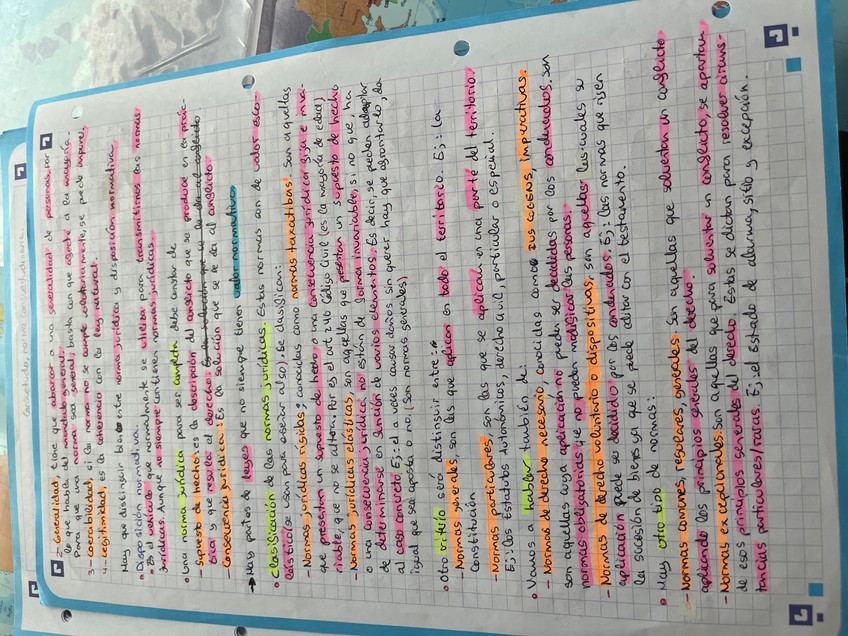 2- Generalidad, tiene que abarcar a una generalidad de personas, por
lo que habla del mandato general.
Para que una norma sea general, basta con que afecte a la mayoría.
3- coercibilidad, si la norma no se cumple voluntariamente, se puede imponer.
4- Legitimidad, es la coherencia con la ley natural.
Hay que distinguir bien entre norma jurídica y disposición normativa.
• Disposición normativa.
• Es el vehículo que normalmente se utiliza para transmitirnos las normas
jurídicas. Aunque no siempre contienen normas jurídicas.
• Una norma jurídica para ser completa debe constar de
- Supuesto de hecho: es la descripción del conflicto que se produce en
y que regula el derecho. Es la solución que se le da al conflicto
- Consecuencia jurídica: Es la solución que se le da al conflicto.
→ Hay partes de leyes que no siempre tienen valor normativo
• Clasificación de las normas jurídicas. Estas normas son de valor
(se usan para enseñar algo). Se clasifican:
- Normas jurídicas rígidas, conocidas como normas taxatibas. Son aquellas
que presentan un supuesto de hecho o una consecuencia jurídica fija e inva-
riable, que no se altera. Por Ej el art 240 Código Civil (es la mayoría de edad)
- Normas jurídicas elásticas, son aquellas que presentan un supuesto de hecho
o una consecuencia jurídica no están de forma invariable, si no que, ha
de determinarse en función de varios elementos. Es decir, se pueden adaptar
al caso concreto Ej: el a veces causar daños sin querer hay que afrontarlo, da
igual que sea aposta o no. (Son normas generales)
• Otro criterio será distinguir entre:
- Normas generales, son las que aplican en todo el territorio. Ej: La
Constitución
- Normas particulares, son las que se aplican en una parte del territorio.
Ej: los Estatutos Autonómicos, derecho civil, particular o especial.
• Vamos a hablar también de:
- Normas de derecho necesario, conocidas como ius cogens, imperativas.
son aquellas cuya aplicación no pueden ser decididas por los condenados. son
normas obligatorias que no pueden modificar las personas.
- Normas de derecho voluntario o dispositivas, son aquellas las cuales su
aplicación puede ser decidido por los condenados. Ej: las normas que rigen
la sucesión de bienes ya que se puede editar con el testamento.
• Hay otro tipo de normas:
- Normas comunes, regulares, generales. Son aquellas que solventan un conflicto
aplicando los principios generales del derecho.
- Normas excepcionales. Son aquellas que para solventar un conflicto, se apartan
de esos principios generales del derecho. Estas se dictan para resolver circuns-
tancias particulares/raras. Ej: el Estado de alarma, sitio y excepción.